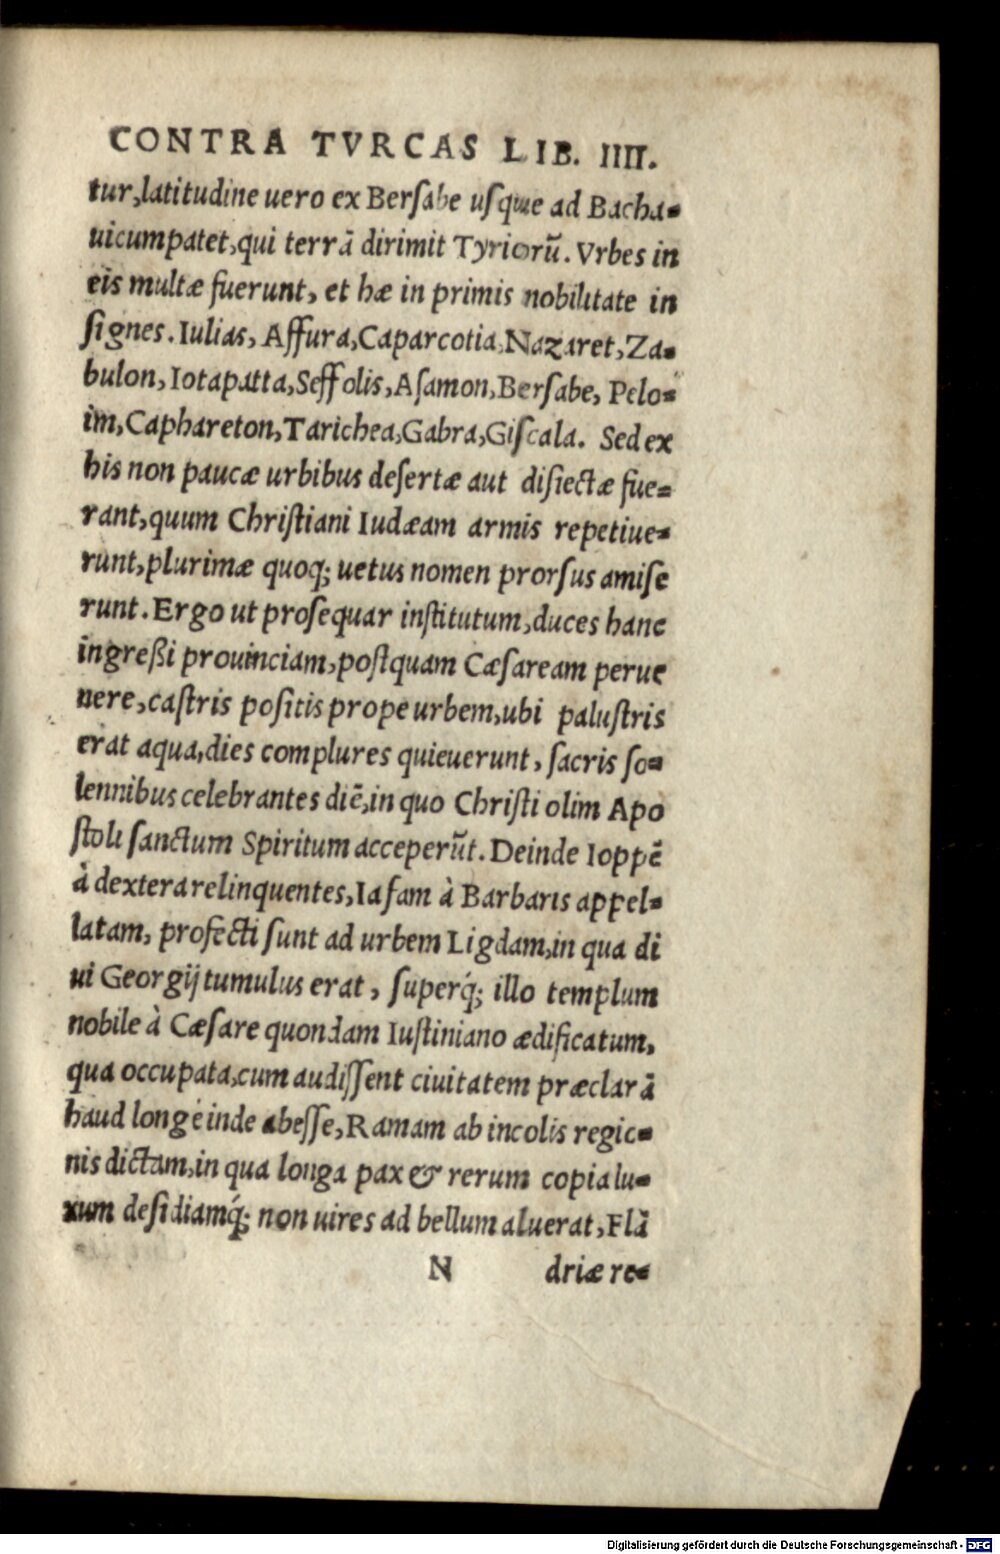 CONTRA TVRCAS LIB. IIII.
tur,latitudine uero ex Berſabe uſque ad Bacha-
uicumpatet,qui terrā dirimit Tyriorū. Vrbes in
eis multæ fuerunt, et hæ in primis nobilitate in
ſignes. Iulias, Aſſura,Caparcotia,Nazaret,Za-
bulon, Iotapatta,Seffolis,Aſamon,Berſabe, Pelo-
im,Caphareton,Tarichea,Gabra,Giſcala. Sed ex
his non paucæ urbibus deſertæ aut diſiectæ fue-
rant,quum Chriſtiani Iudæam armis repetiue-
runt,plurimæ quoq; uetus nomen prorſus amiſe
runt. Ergo ut proſequar inſtitutum,duces hanc
ingreßi prouinciam,poſtquam Cæſaream perue
nere,caſtris poſitis prope urbem,ubi paluſtris
erat aqua,dies complures quieuerunt, ſacris ſo-
lennibus celebrantes diē,in quo Chriſti olim Apo
ſtoli ſanctum Spiritum acceperūt. Deinde Ioppē
à dextera relinquentes,Iafam à Barbaris appel-
latam, profecti ſunt ad urbem Ligdam,in qua di
ui Georgij tumulus erat, ſuperq́; illo templum
nobile à Cæſare quondam Iuſtiniano ædificatum,
qua occupata,cum audiſſent ciuitatem præclarā
haud longè inde abeſſe,Ramam ab incolis regio-
nis dictam,in qua longa pax & rerum copia lu-
xum deſidiamq́; non uires ad bellum aluerat,Flā
N driæ re-
Digitalisierung gefördert durch die Deutsche Forschungsgemeinschaft - DFG